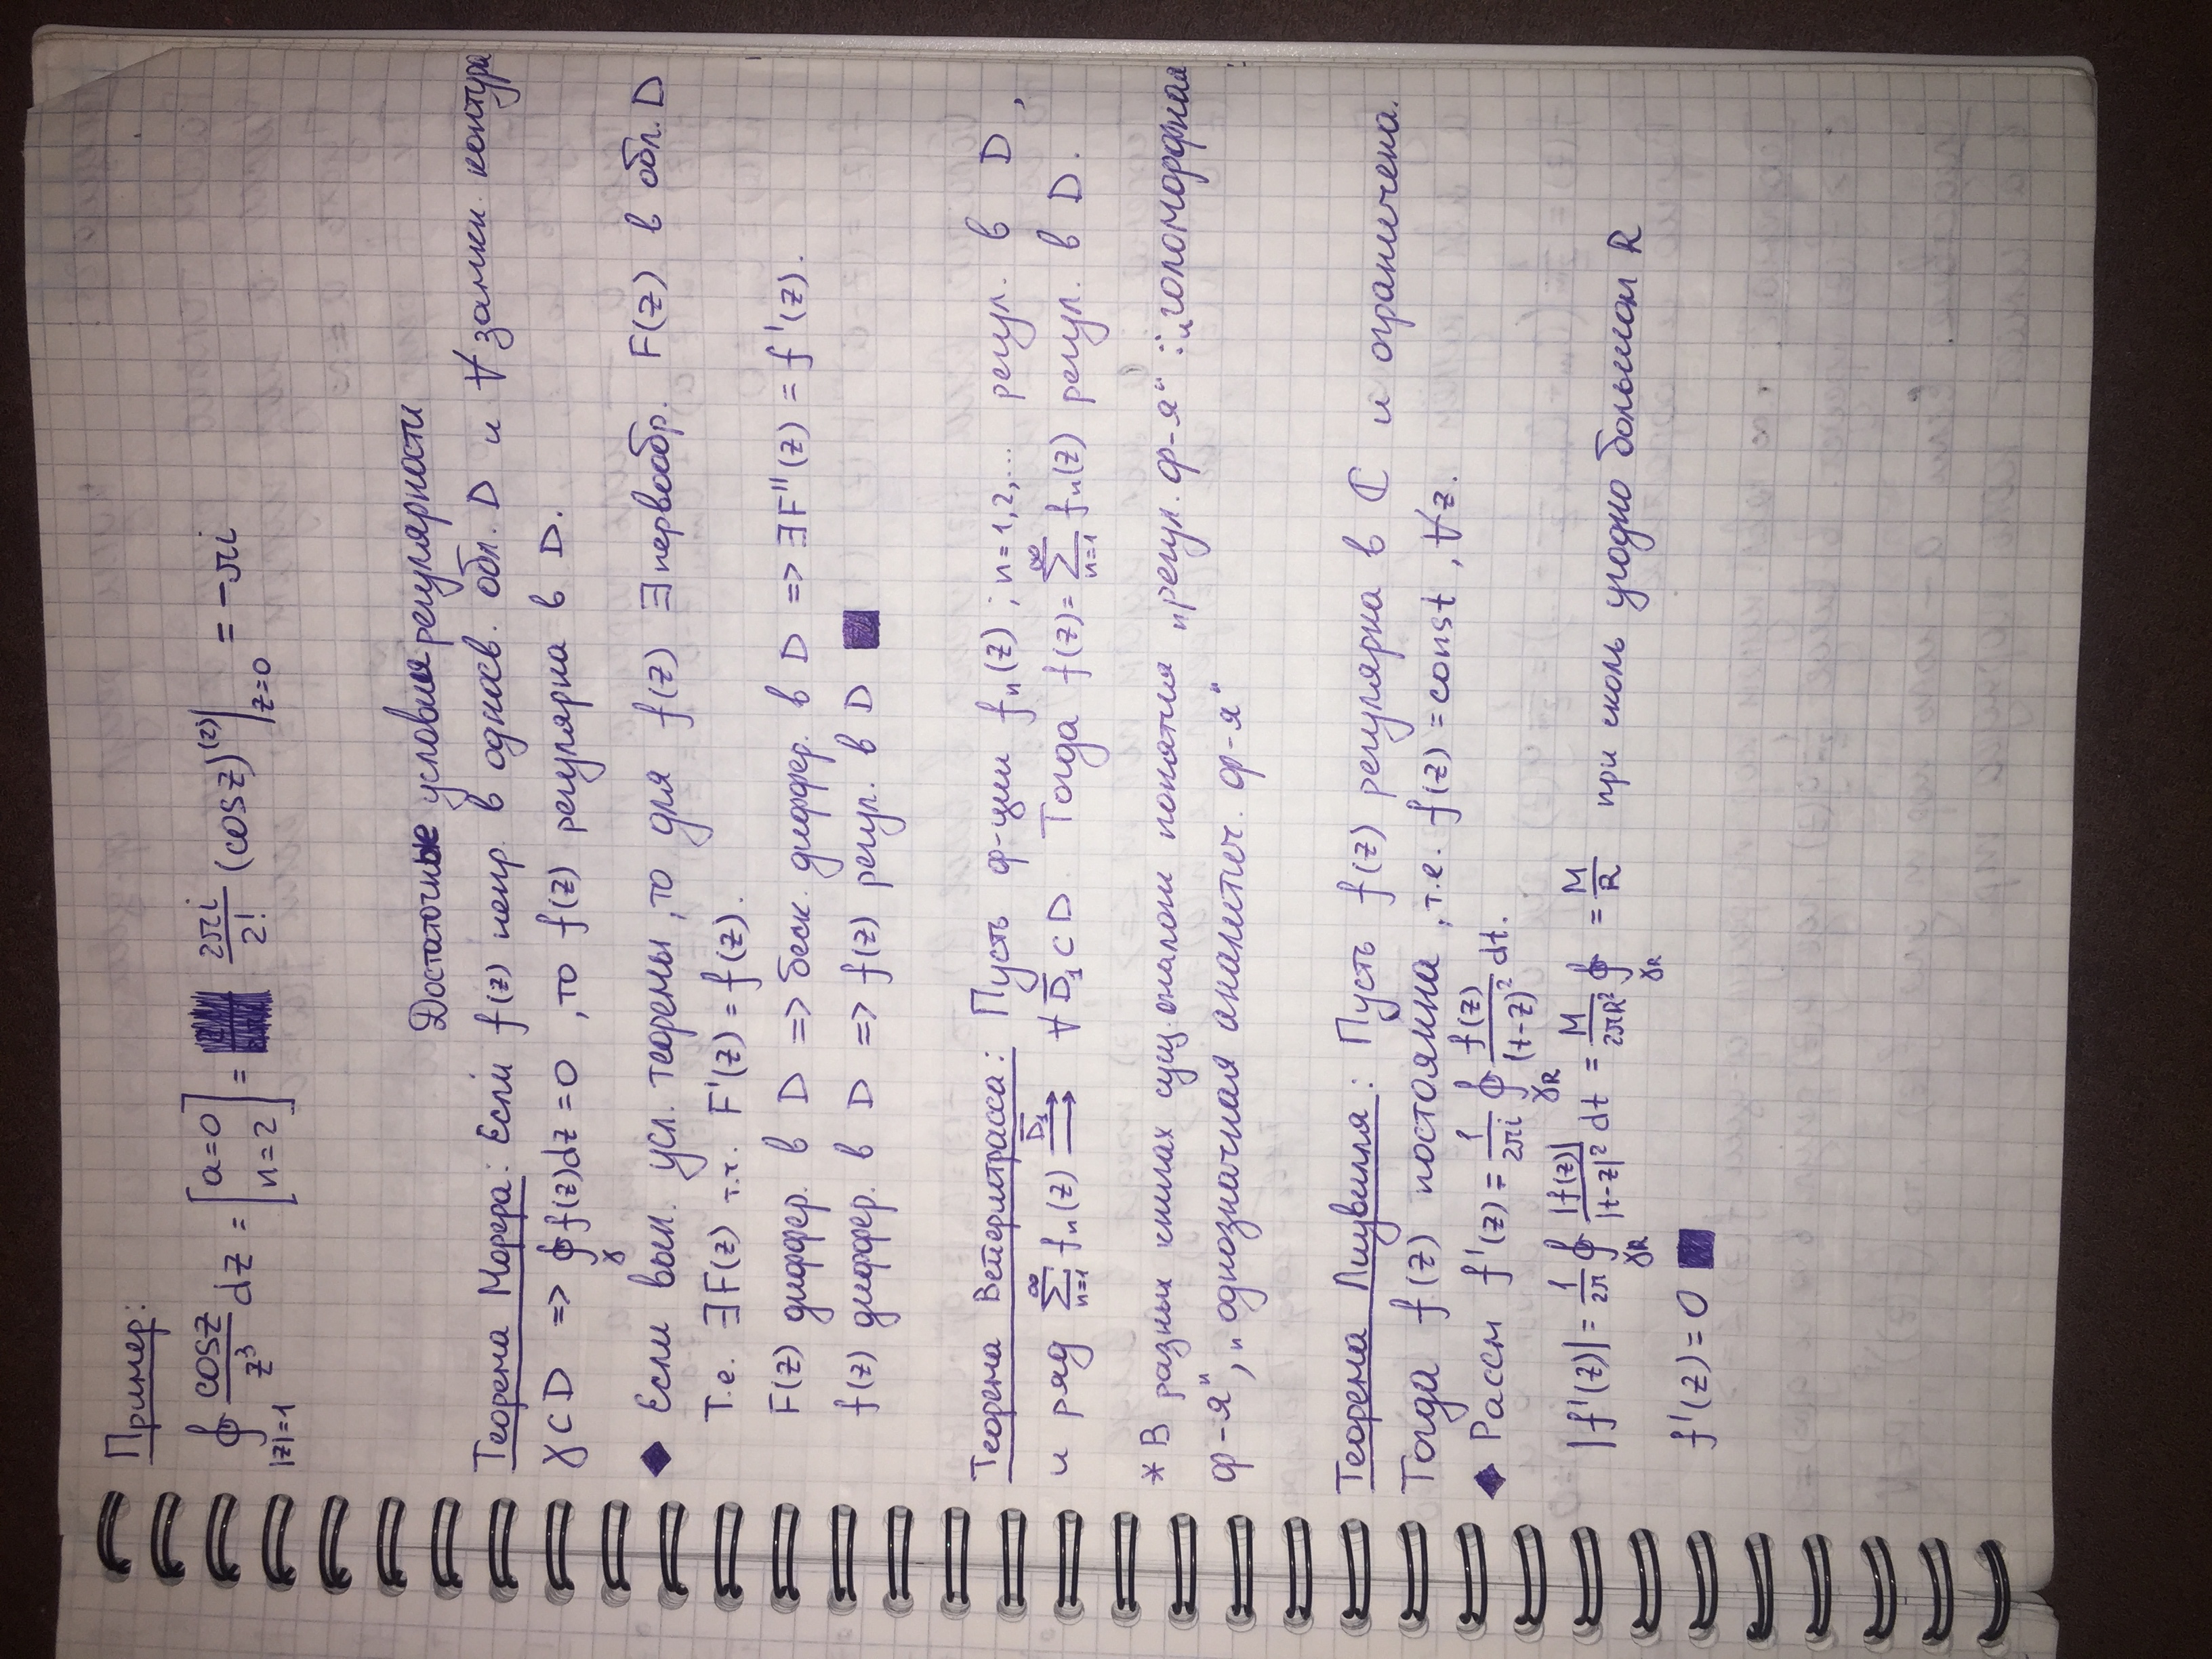 Пример:
∮_{|z|=1} cosz/z³ dz = [a=0 n=2] = 2πi/2! (cosz)^{(2)}|_{z=0} = -πi
Достаточные условия регулярности
Теорема Морера: Если f(z) непр. в односв. обл. D и ∀ замкн. контура
γ⊂D => ∮_γ f(z)dz = 0 , то f(z) регулярна в D.
◆ Если вып. усл. теоремы, то для f(z) ∃ первообр. F(z) в обл. D
Т.е. ∃F(z) т.ч. F'(z) = f(z).
F(z) диффер. в D => беск. диффер. в D => ∃F''(z) = f'(z).
f(z) диффер. в D => f(z) регул. в D ■
Теорема Вейерштрасса: Пусть ф-ции f_n(z) ; n=1,2,... регул. в D ,
и ряд ∑_{n=1}^{∞} f_n(z) ⇉^{D̅₁} ∀ D̅₁⊂D. Тогда f(z) = ∑_{n=1}^{∞} f_n(z) регул. в D.
* В разных книгах сущ. аналоги понятия „регул. ф-я“ : „голоморфная
ф-я“, „однозначная аналитич. ф-я“
Теорема Лиувилля: Пусть f(z) регулярна в ℂ и ограничена.
Тогда f(z) постоянна, т.е. f(z) = const , ∀z.
◆ Рассм f'(z) = 1/2πi ∮_{γR} f(z)/(t-z)² dt.
|f'(z)| = 1/2π ∮_{γR} |f(z)|/|t-z|² dt = M/2πR² ∮_{γR} = M/R при сколь угодно большом R
f'(z) = 0 ■